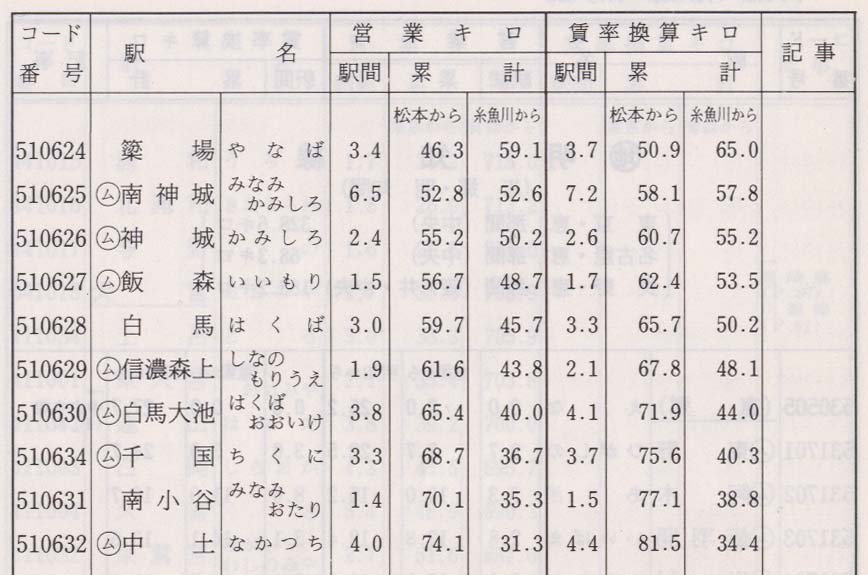 コード番号 駅名 営業キロ 賃率換算キロ 記事
駅間 累計 駅間 累計
松本から 糸魚川から 松本から 糸魚川から
510624 簗場 やなば 3.4 46.3 59.1 3.7 50.9 65.0
510625 ㋰南神城 みなみかみしろ 6.5 52.8 52.6 7.2 58.1 57.8
510626 ㋰神城 かみしろ 2.4 55.2 50.2 2.6 60.7 55.2
510627 ㋰飯森 いいもり 1.5 56.7 48.7 1.7 62.4 53.5
510628 白馬 はくば 3.0 59.7 45.7 3.3 65.7 50.2
510629 ㋰信濃森上 しなのもりうえ 1.9 61.6 43.8 2.1 67.8 48.1
510630 ㋰白馬大池 はくばおおいけ 3.8 65.4 40.0 4.1 71.9 44.0
510634 ㋰千国 ちくに 3.3 68.7 36.7 3.7 75.6 40.3
510631 南小谷 みなみおたり 1.4 70.1 35.3 1.5 77.1 38.8
510632 ㋰中土 なかつち 4.0 74.1 31.3 4.4 81.5 34.4